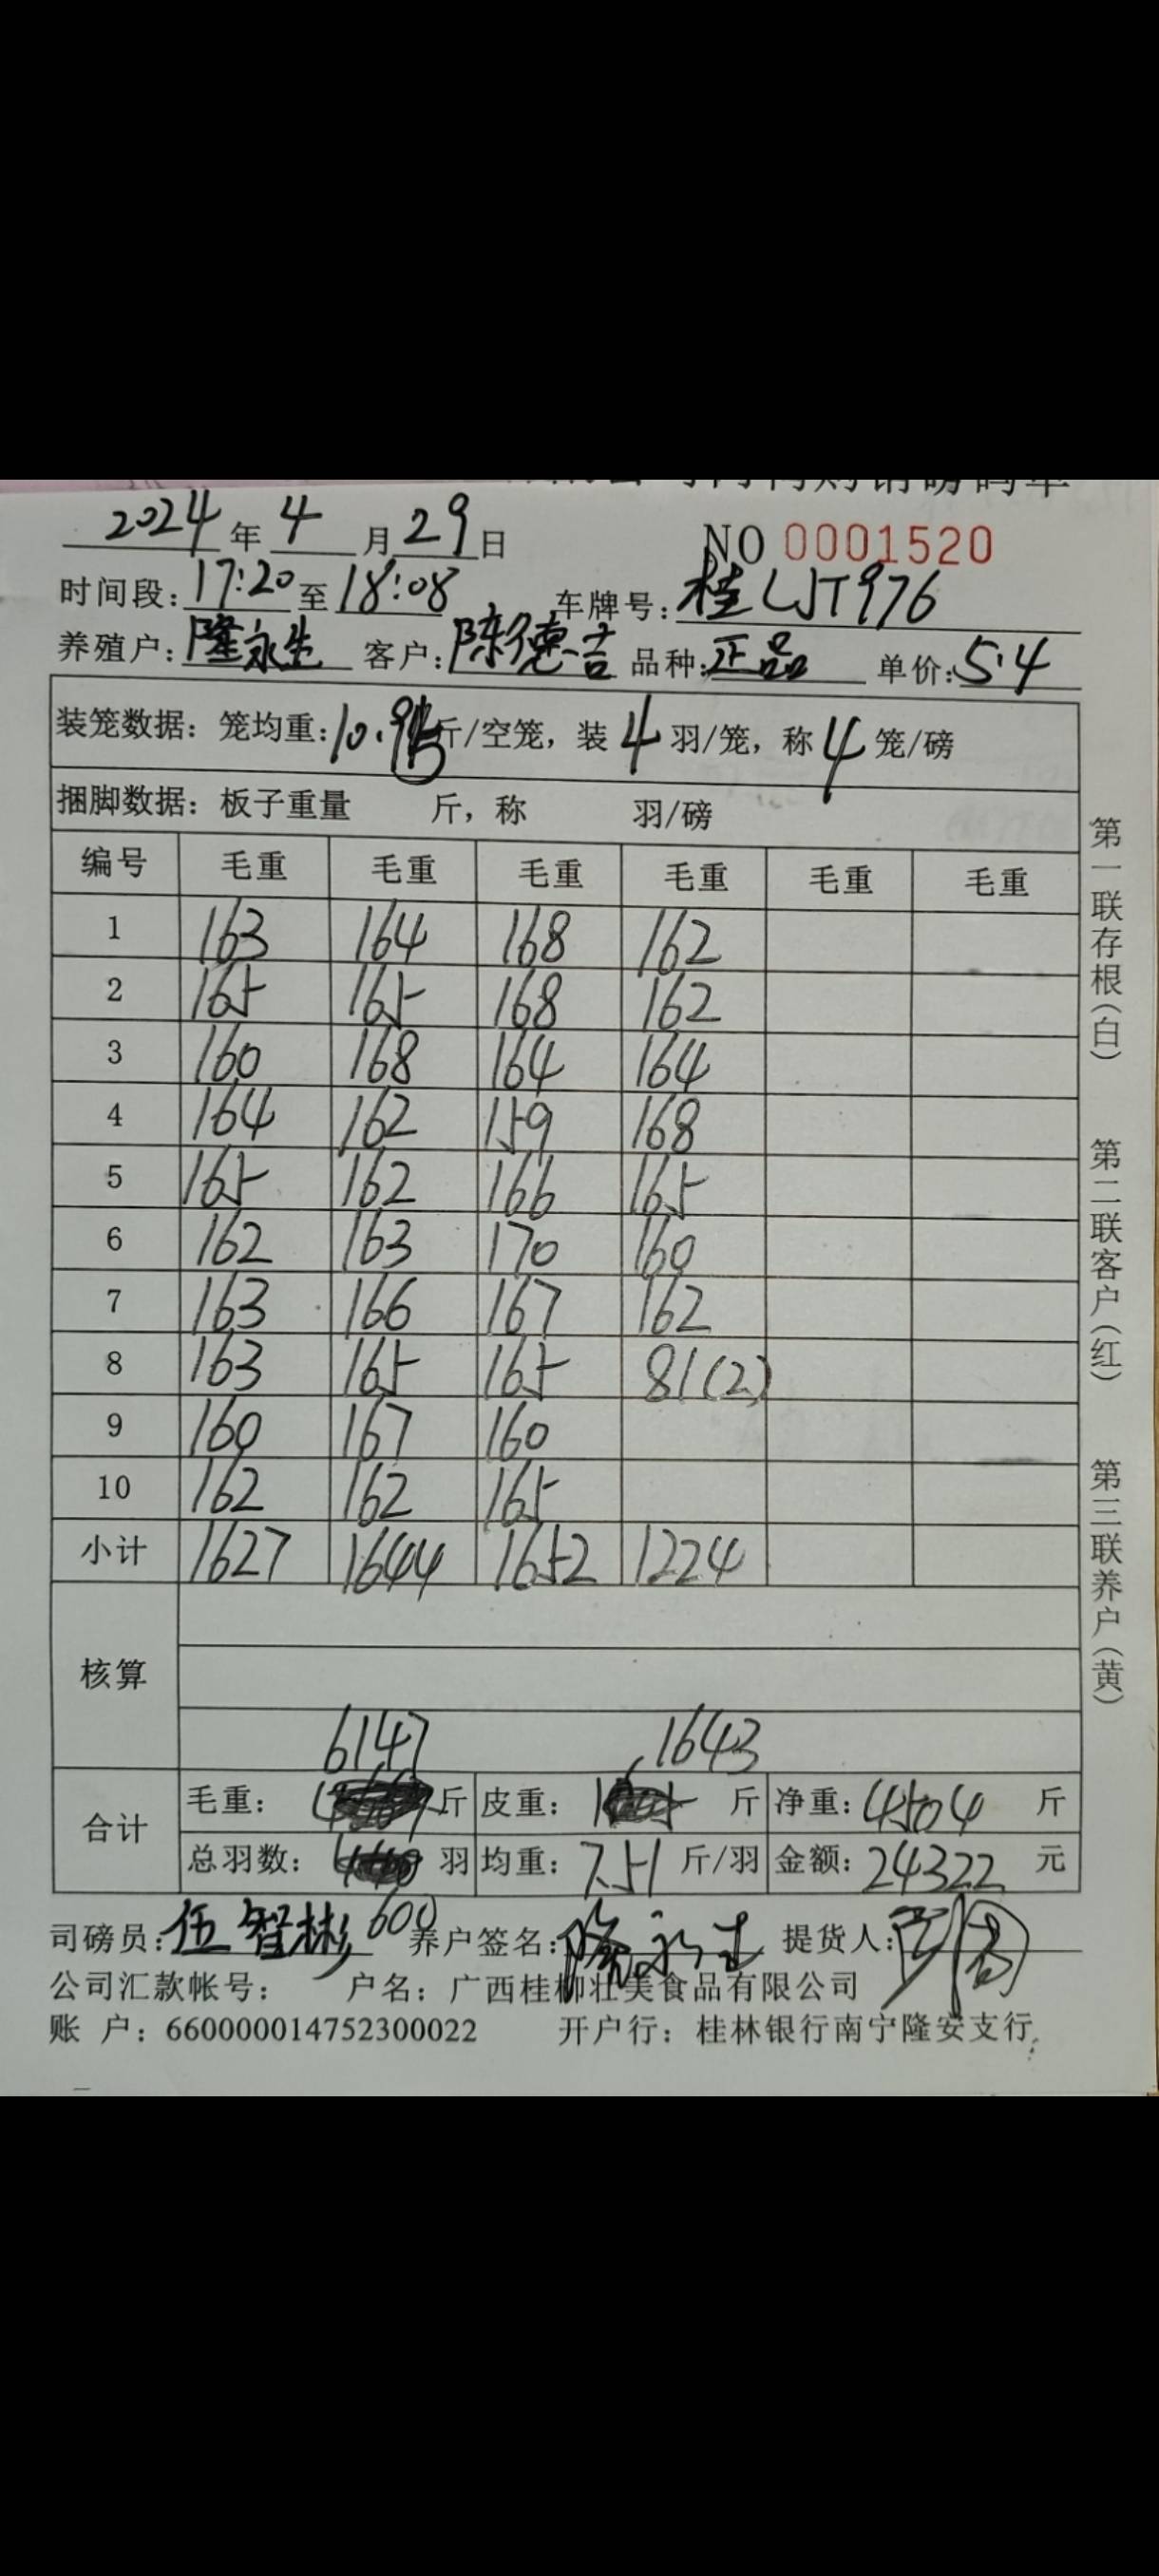 购销磅码单
2024年4月29日 NO 0001520
时间段:17:20至18:08 车牌号:桂LJT976
养殖户:隆永生 客户:陈德吉 品种:正品 单价:5.4
装笼数据:笼均重:10.95斤/空笼,装4羽/笼,称4笼/磅
捆脚数据:板子重量 斤,称 羽/磅
编号 毛重 毛重 毛重 毛重 毛重 毛重
1 163 164 168 162
2 165 165 168 162
3 160 168 164 164
4 164 162 159 168
5 165 162 166 165
6 162 163 170 160
7 163 166 167 162
8 163 165 165 81(2)
9 160 167 160
10 162 162 165
小计 1627 1644 1652 1224
核算
6147 1643
合计 毛重: 斤 皮重: 斤 净重:4504斤
总羽数: 羽 均重:7.51斤/羽 金额:24322元
600
司磅员:伍智彬 养户签名:隆永生 提货人:
公司汇款帐号: 户名:广西桂柳壮美食品有限公司
账 户:660000014752300022 开户行:桂林银行南宁隆安支行
第一联存根(白) 第二联客户(红) 第三联养户(黄)